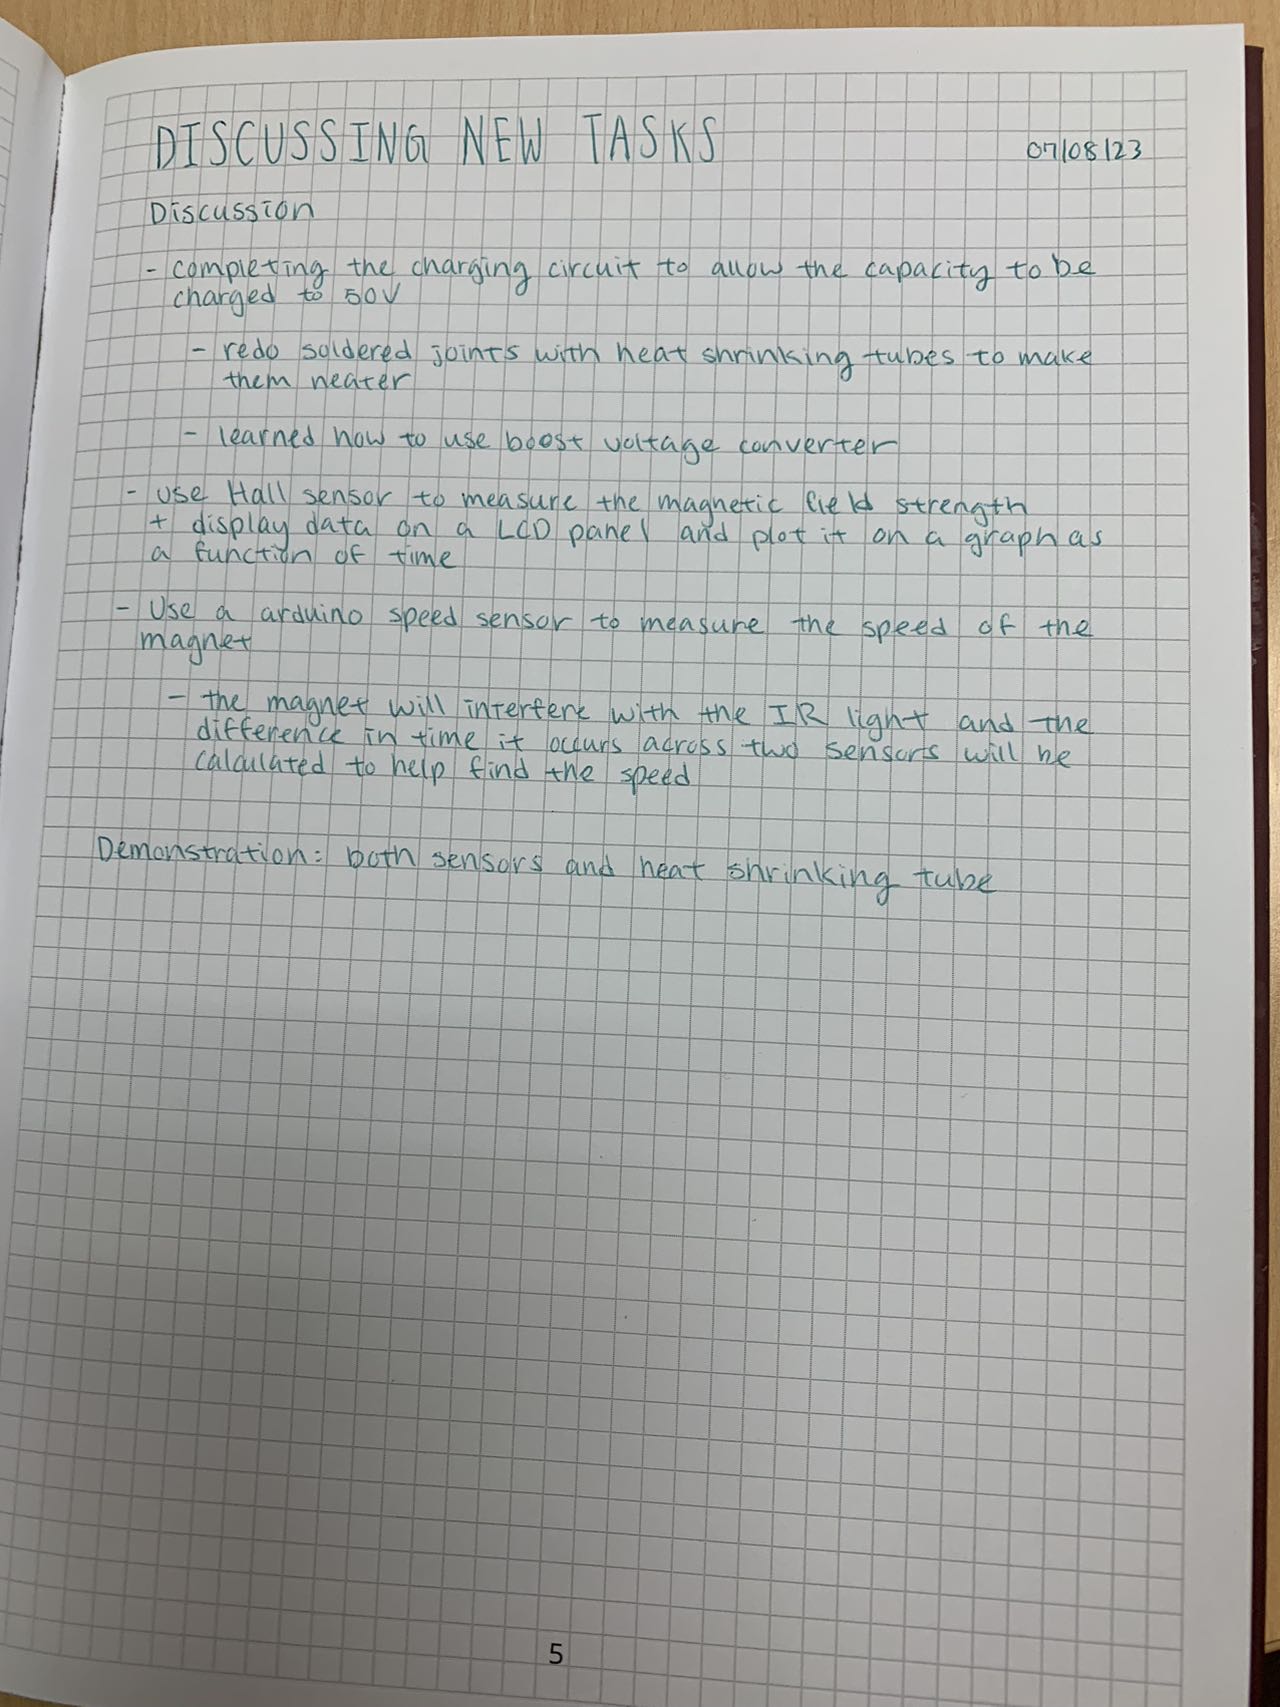 DISCUSSING NEW TASKS 07/08/23
Discussion
- completing the charging circuit to allow the capacity to be
charged to 50V
- redo soldered joints with heat shrinking tubes to make
them neater
- learned how to use boost voltage converter
- use Hall sensor to measure the magnetic field strength
+ display data on a LCD panel and plot it on a graph as
a function of time
- Use a arduino speed sensor to measure the speed of the
magnet
- the magnet will interfere with the IR light and the
difference in time it occurs across two sensors will be
calculated to help find the speed
Demonstration: both sensors and heat shrinking tube
5